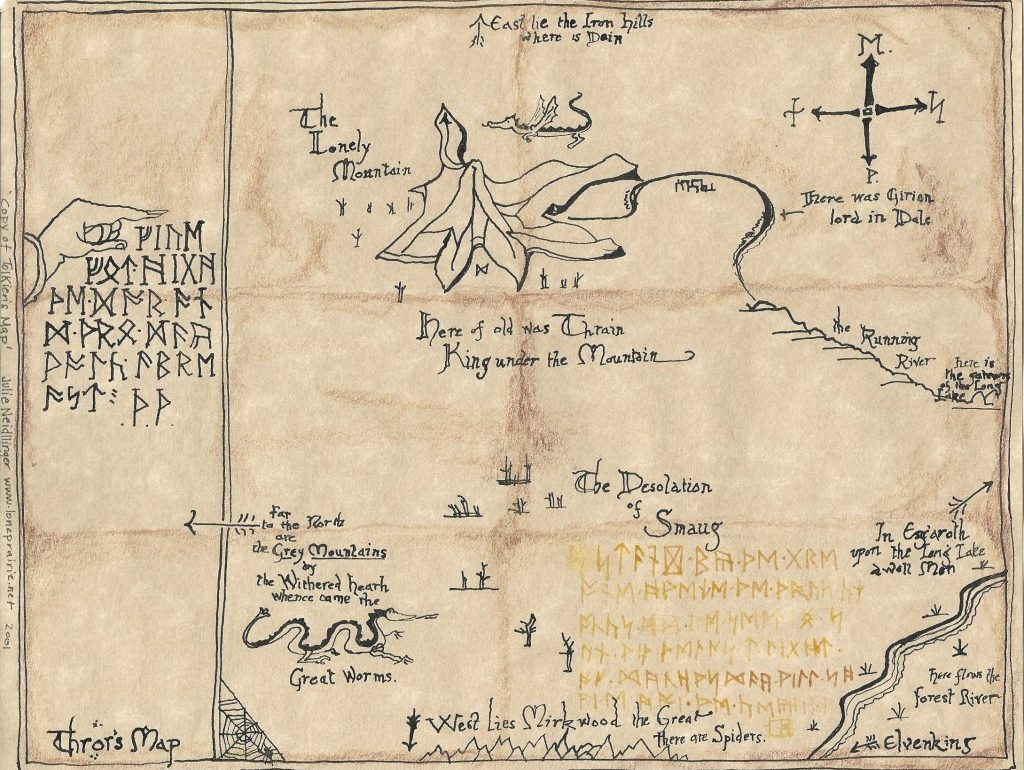 East lie the Iron Hills
where is Dain
ᛖ.
ᚾ
ᛋ
ᚹ.
The
Lonely
Mountain
There was Girion
lord in Dale
ᚠᛁᚢᛖ
ᚠᛟᛏ᛫ᚻᛁᚷᚻ
ᚦᛖ᛫ᛞᚩᚱ᛫ᚪᚾ
ᛞ᛫ᚦᚱᛟ᛫ᛗᚪᚣ
ᚹᚪᛚᚳ᛫ᚪᛒᚱᛖ
ᚪᛋᛏ᛬
ᚦ᛫ᚦ᛫
ᛞ
Here of old was Thrain
King under the Mountain
the
Running
River
here is
the
of the Long
Lake
The Desolation
of
Smaug
Far
to the North
are
the Grey Mountains
by
the Withered Heath
whence came the
Great Worms.
In Esgaroth
upon the Long Lake
dwell Men
ᛋᛏᚪᚾᛞ᛫ᛒᚣ᛫ᚦᛖ᛫ᚷᚱᛖ
here flows the
Forest River
West lies Mirkwood the Great
there are Spiders.
Elvenking
Thror's Map
'Copy of Tolkien's Map' Julie Neidlinger www.loneprairie.net 2001